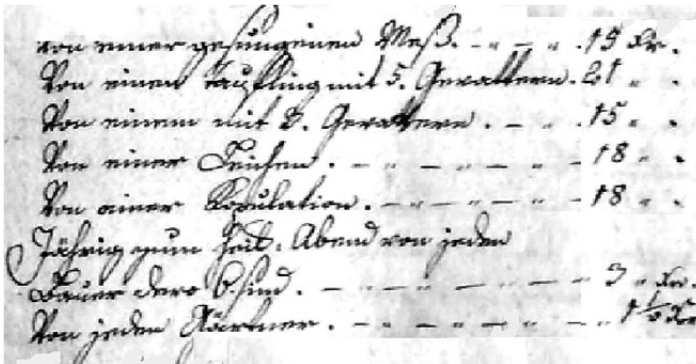 von einer gesungenen Meß. - „ - „ . 15 Kr.
Von einen Taufling mit 5. Gevattern. 21 „ .
Von einem mit 3. Gevattern . - „ . 15 „ .
Von einer Leichen . - „ - „ - „ - 18 „ .
Von einer Kopulation . - „ - „ - „ - 18 „ .
Jährig zum heil. Abend von jeden
Bauer dero 6. sind . - „ - „ - „ - 3 „ Kr.
Von jeden Gärtner . - „ - „ - „ - 1½ Kr